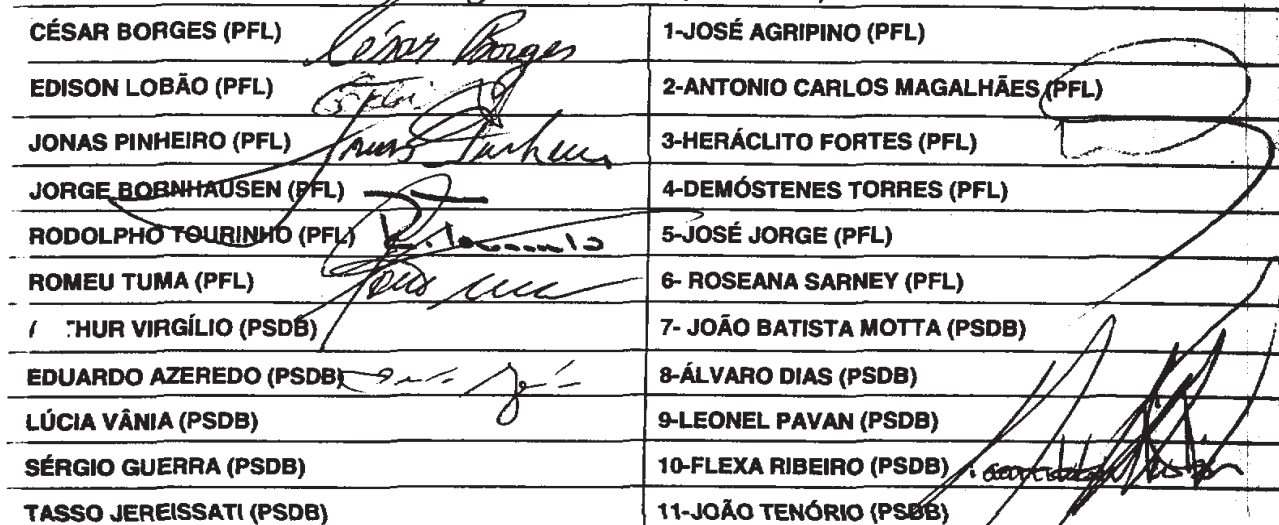 CÉSAR BORGES (PFL) César Borges 1-JOSÉ AGRIPINO (PFL)
EDISON LOBÃO (PFL) 2-ANTONIO CARLOS MAGALHÃES (PFL)
JONAS PINHEIRO (PFL) Jonas Pinheiro 3-HERÁCLITO FORTES (PFL)
JORGE BORNHAUSEN (PFL) 4-DEMÓSTENES TORRES (PFL)
RODOLPHO TOURINHO (PFL) 5-JOSÉ JORGE (PFL)
ROMEU TUMA (PFL) 6- ROSEANA SARNEY (PFL)
THUR VIRGÍLIO (PSDB) 7- JOÃO BATISTA MOTTA (PSDB)
EDUARDO AZEREDO (PSDB) 8-ÁLVARO DIAS (PSDB)
LÚCIA VÂNIA (PSDB) 9-LEONEL PAVAN (PSDB)
SÉRGIO GUERRA (PSDB) 10-FLEXA RIBEIRO (PSDB)
TASSO JEREISSATI (PSDB) 11-JOÃO TENÓRIO (PSDB)